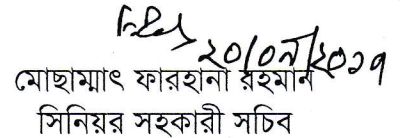 ২০/০৮/২০১৭
মোছাম্মাৎ ফারহানা রহমান
সিনিয়র সহকারী সচিব